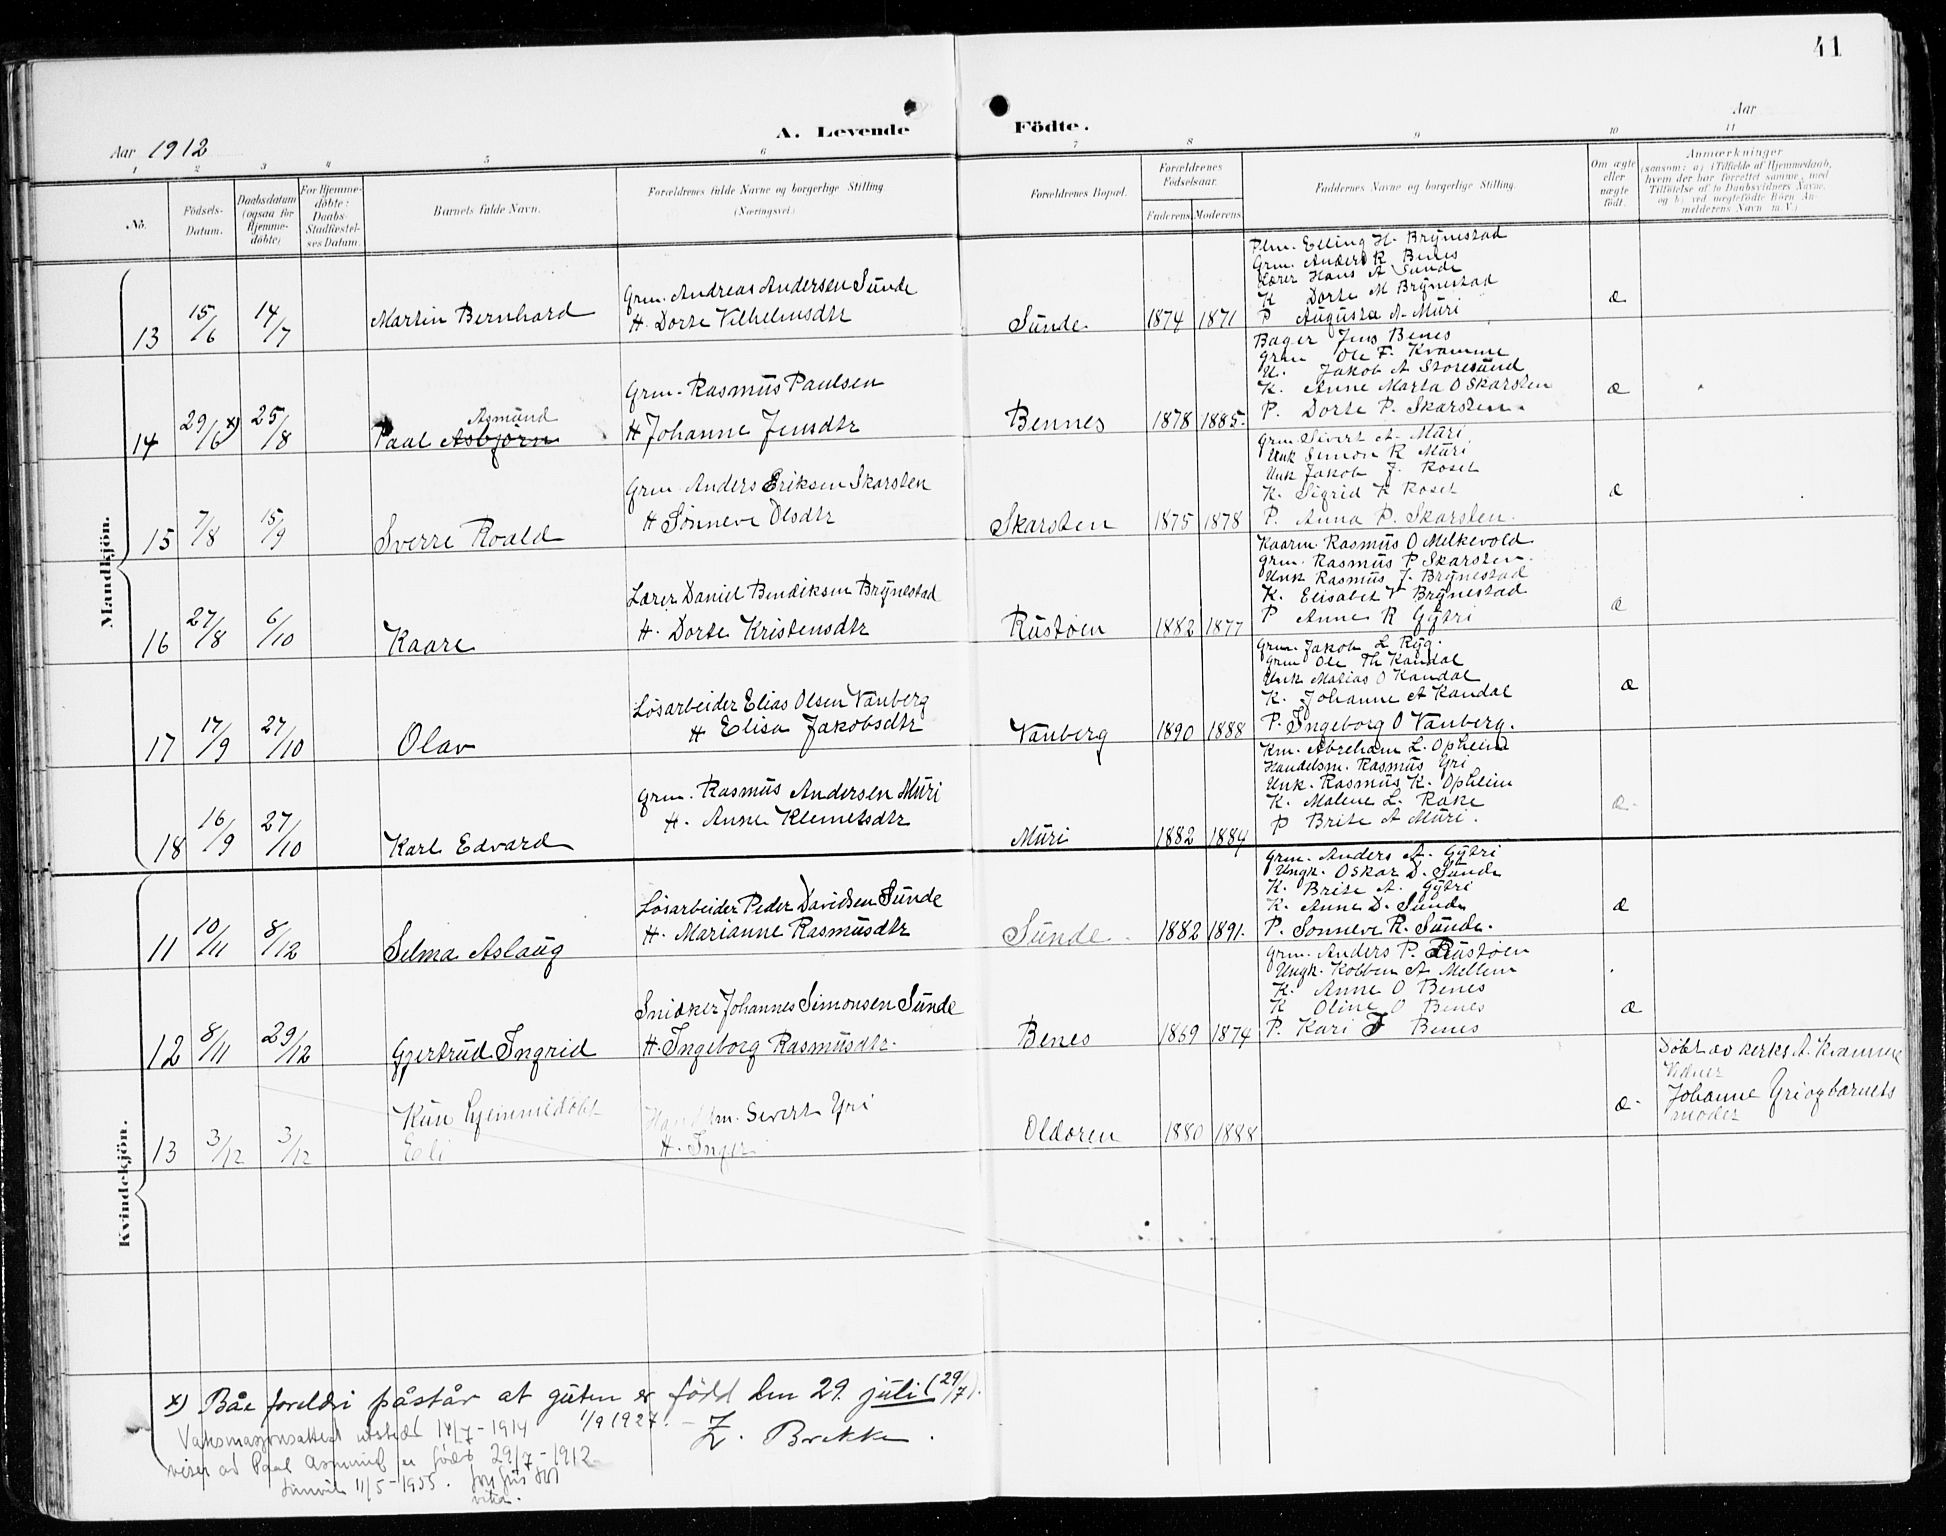 41
A. Levende Födte.
Aar 1912
Aar
1 2 3 4 5 6 7 8 9 10 11
No.
Födsels-Datum.
Daabsdatum (ogsaa for Hjemme-döbte)
For Hjemme-döbte: Daabs-Stadfæstel-ses Datum.
Barnets fulde Navn.
Forældrenes fulde Navne og borgerlige Stilling (Næringsvei)
Forældrenes Bopæl.
Forældrenes Fødselsaar.
Faderens
Moderens
Faddernes Navne og borgerlige Stilling.
Om ægte eller uægte født.
Anmærkninger
(saasom: a) i Tilfælde af Hjemmedaab, hvem der har forrettet samme, med Tilföielse af to Daabsvidners Navne, og b) ved uægtefødte Börn An-melderens Navn m. V.)
Mandkjön.
13 15/6 14/7 Martin Bernhard
Grm. Andreas Andersen Sunde
H. Dorte Vilhelmsdtr
Sunde 1874 1871
Plm. Elling H. Brynestad
Grm. Anders R Benes
Lærer Hans A Sunde
K Dorte M Brynestad
P Augusta A. Muri
æ
14 29/6 x) 25/8 Paal Asbjørn
Asmund
Grm. Rasmus Paulsen
H Johanne Jensdtr
Bennes 1878 1885.
Bager Jens Benes
Grm Ole F. Kvamme
U. Jakob A Storesund
K. Anne Marta O Skarsten
P. Dorte P. Skarsten.
æ
15 7/8 15/9 Sverre Roald
Grm Anders Eriksen Skarsten
H Sønneve Olsdtr
Skarsten 1875 1878
Grm Sivert A. Muri
Unk Simon R Muri
Unk Jakob J. Roset
K. Sigrid K Roset
P. Anna P. Skarsten.
æ
16 27/8 6/10 Kaare
Lærer Daniel Bendiksen Brynestad
H. Dorte Kristensdtr
Rustøen 1882 1877
Kaarm. Rasmus O Melkevold
Grm. Rasmus P Skarsten.
Unk Rasmus J. Brynestad
K. Elisabet V Brynestad
P Anne R Gytri
æ
17 17/9 27/10 Olav
Løsarbeider Elias Olsen Vanberg
H Elisa Jakobsdtr
Vanberg 1890 1888
Grm. Jakob L Ryg.
Grm Ole Th Kandal
Unk Matias O Kandal
K. Johanne A Kandal
P. Ingeborg O Vanberg.
æ
18 16/9 27/10 Karl Edvard
Grm. Rasmus Andersen Muri
H. Anne Klemetsdtr
Muri 1882 1884
Km. Abreham L. Opheim
Handelsm. Rasmus Yri
Unk. Rasmus K. Opheim
K. Malene L. Rake
P Brite A Muri.
æ
Kvindekjön.
11 10/11 8/12 Selma Aslaug
Løsarbeider Peder Davidsen Sunde
H. Marianne Rasmusdtr
Sunde 1882 1891.
Grm. Anders A. Gytri
Ungk. Oskar D. Sunde
K. Brite A. Gytri
K. Anne D. Sunde
P. Sonneve R. Sunde.
æ
12 8/11 29/12 Gjertrud Ingrid
Snidker Johannes Simonsen Sunde
H. Ingeborg Rasmusdtr.
Benes 1869 1874
Grm. Anders P. Rustøen
Ungk. Kobben A Mellem
K. Anne O Benes
K Oline O Benes
P. Kari J Benes
æ
13 3/12 3/12 Kun hjemmedøbt
Eli
Handelsm. Sivert Yri
H. Inger
Oldøren 1880 1888
æ
Døbt av kirks. A. Kvamme
Vidner
Johanne Yri og barnets
moder
x) Båe foreldri påstår at guten er född den 29. juli (29/7).
1/9 1927. – Z. Brekke.
Vaksinasjonsattest utstedt 14/7 – 1914
viser at Paal Asmund er født 29/7 – 1912
11/5 – 1955.